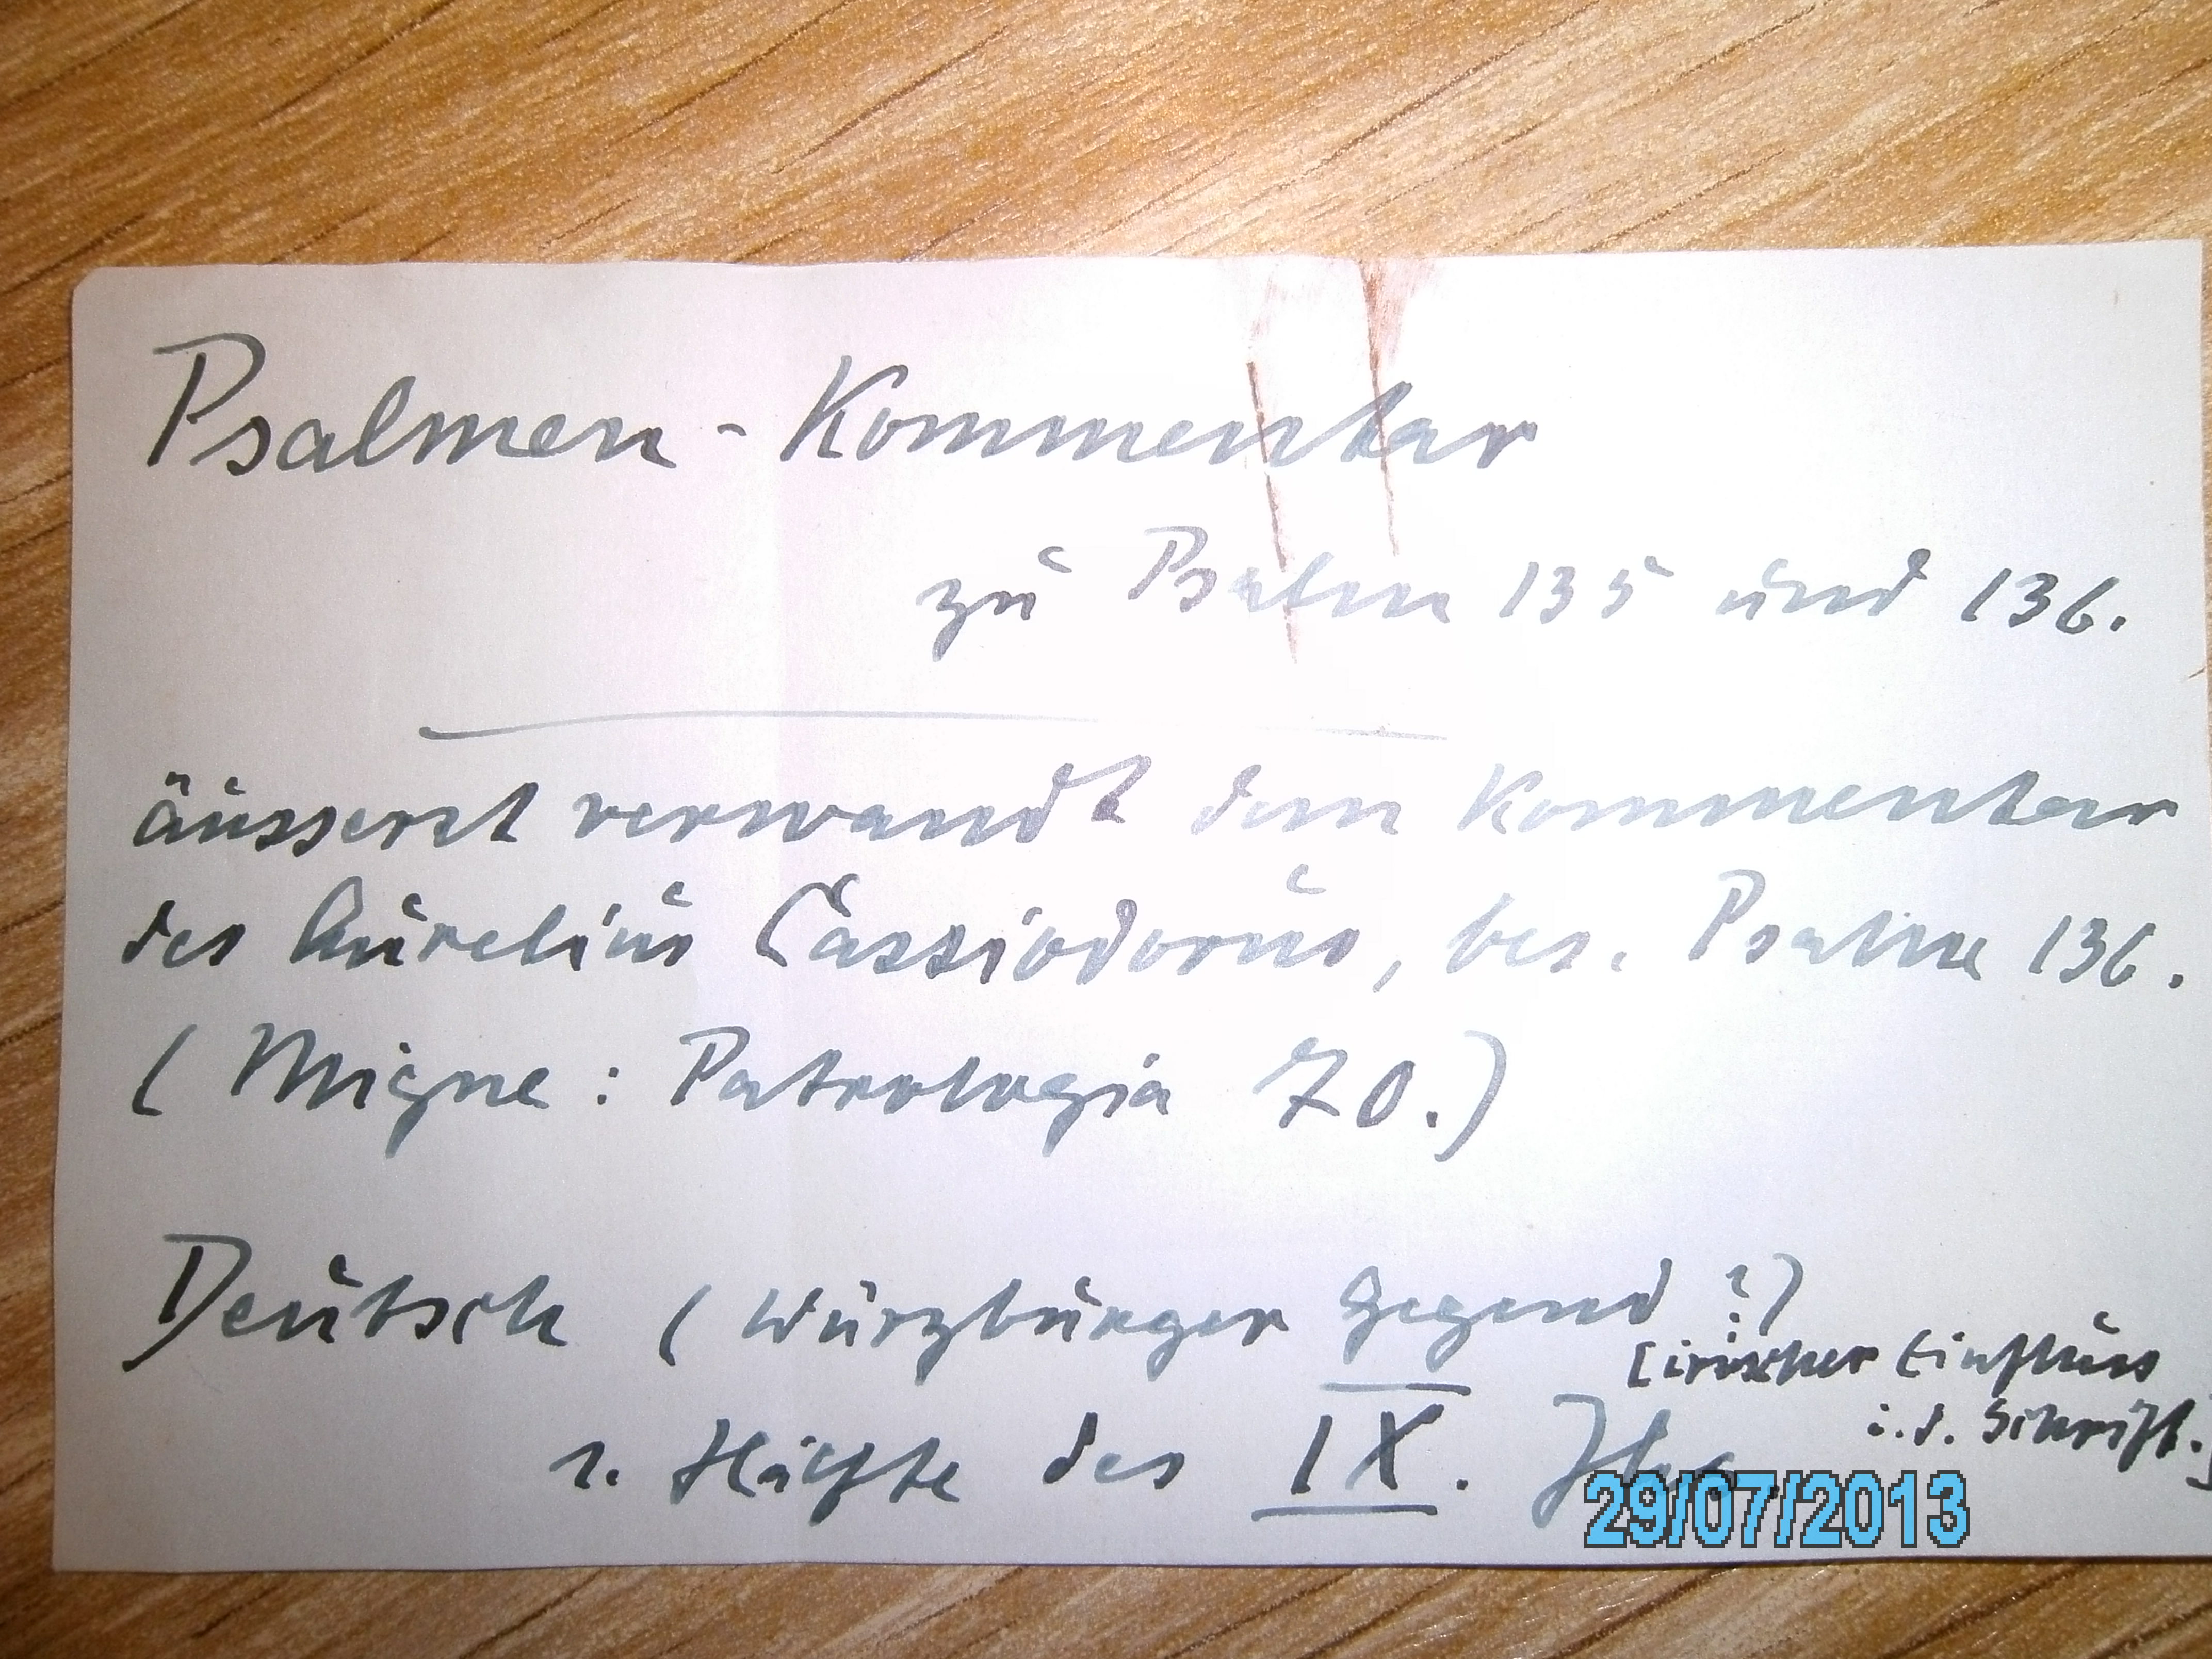 Psalmen - Kommentar
zu Psalm 135 und 136.
äusserst verwandt dem Kommentar
des Aurelius Cassiodorus, bes. Psalm 136.
(Migne: Patrologia 70.)
Deutsch (Würzburger Gegend?)
[irischer Einfluss
i.d. Schrift.]
1. Hälfte des IX.
29/07/2013